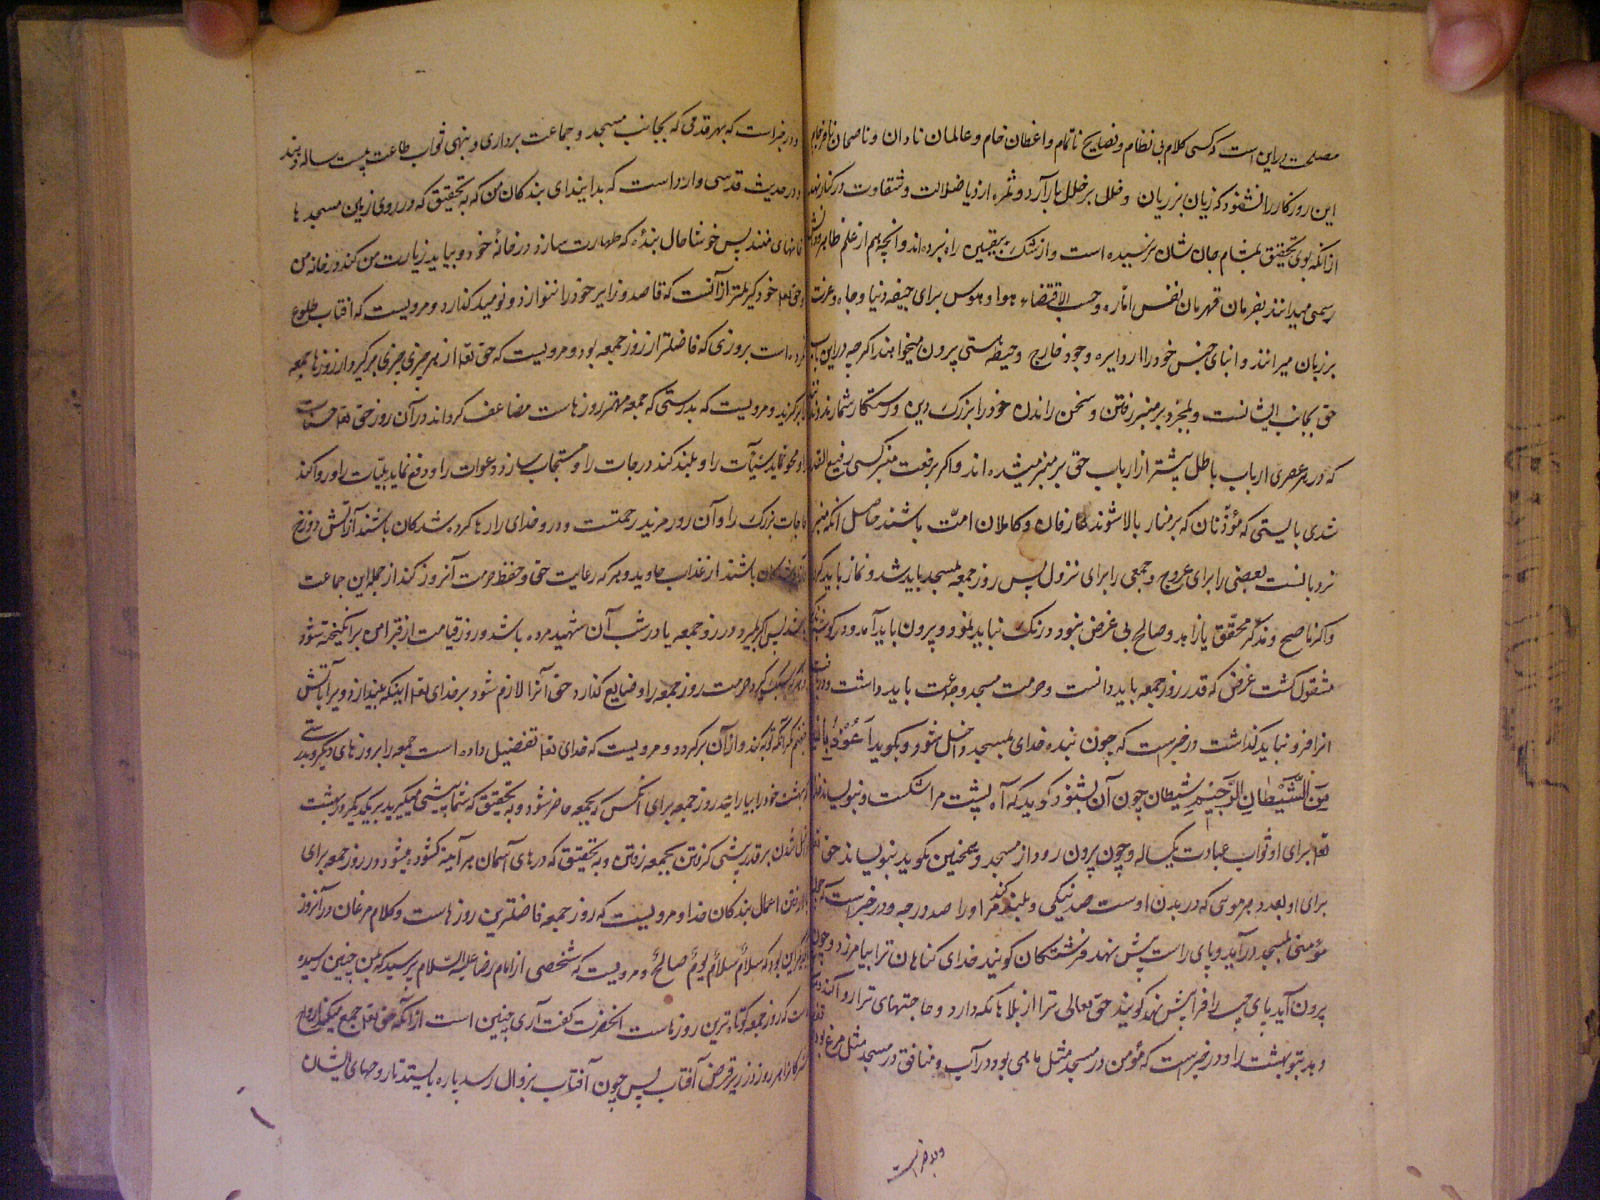 مصلحت دراین است که کسی کلام بی نظام و نصایح ناتمام واعظان خام و عالمان نادان و ناصحان نافرجام
این روزکار را نشنود که زیان بر زیان و خلل بر خلل بار آرد و ثمره ازدیاد ضلالت و شقاوت در کنار نهد
ازانکه بوی تحقیق بمشام جان شان نرسیده است و از شک بیقین راه نبرده اند و آنچه هم از علم ظاهر
رسمی میدانند بفرمان قهرمان نفس اماره و حسب الاقتضاء هوا و هوس برای جیفه دنیا و جاه و عزت
بر زبان میرانند و ابنای جنس خود را از دایره وجود خارج و حیطه هستی بیرون میخوانند اکرچه دراین باب
حق بجانب ایشانست و بمجرد بر منبر رفتن و سخن راندن خود را بزرک دین و رستکار شمارند
که در هر عصری ارباب باطل بیشتر از ارباب حق بر منبر میشده اند و اکر برفعت منبر کسی رفیع القدر
شدی بایستی که مؤذنان که بر منار بالا شوند عارفان و کاملان امت باشند حاصل آنکه منبر
نردبانست بعضی را برای عروج و جمعی را برای نزول پس روز جمعه بمسجد باید شد و نماز باید کرد
و اکر ناصح و مذکر محقق یا زاهد و صالح بی غرض نبود درنک نباید نمود و بیرون باید آمد و در کوشه
مشغول کشت غرض که قدر روز جمعه باید دانست و حرمت مسجد و جماعت باید داشت و
انرا فرو نباید کذاشت در خبرست که چون بنده خدای بمسجد داخل شود و بکوید اَعُوْذُ بِاللّهِ
مِنَ الشَّیْطَانِ الرَّجِیْمِ شیطان چون آن بشنود کوید که آه پشت مرا شکست و بنویساند خدای
تعا برای او ثواب عبادت یکساله و چون بیرون رود از مسجد و همچنین بکوید بنویساند حق تعا
برای او بعدد هر موئی که در بدن اوست صد نیکی و بلند کند مر او را صد درجه و در خبر است که چون
مؤمنی بمسجد درآید و پای راست پیش نهد فرشتکان کویند خدای کناهان ترا بیامرزد و چون
بیرون آید پای چپ را فرا پیش نهد کویند حق تعالی ترا از بلاها نکه دارد و حاجتهای ترا روا کند
و بدهد بتو بهشت را و در خبرست که مؤمن در مسجد مثل ماهی بود در آب و منافق در مسجد مثل مرغ بود
و در خبر است
و در خبر است که بهر قدمی که بجانب مسجد و جماعت برداری و بنهی ثواب طاعت بیست ساله دهند
و در حدیث قدسی وارد است که بدانید ای بندکان من که به تحقیق که در روی زمین مسجد ها
خانهای منند پس خوشا حال بندۀ که طهارت سازد در خانۀ خود و بیاید زیارت من کند در خانه من
و حق تعا خود کریمتر از آنست که قاصد و زایر خود را ننوازد و نومید کذارد و مرویست که افتاب طلوع
نکرده است بروزی که فاضلتر از روز جمعه بود و مرویست که حق تعا از هر چیزی چیزی برکزید و از روزها جمعه
را برکزید و مرویست که بدرستی که جمعه مهتر روزهاست مضاعف کرداند در آن روز حق تعا حسنات
و محو نماید سیئات را و بلند کند درجات را و مستجاب سازد دعوات را و دفع نماید بلیات را و روا کند
حاجات بزرک را و آن روز مزید رحمتست و در و خدای را رها کرده شدکان باشند از آتش دوزخ
باشند از عذاب جاوید و هر که رعایت حق و حفظ حرمت آنروز کند از جمله این جماعت
باشد پس اکر بمیرد در روز جمعه یا در شب آن شهید مرده باشد و روز قیامت از قبر امن برانکیخته شود
و هر که سبک کیرد حرمت روز جمعه را و ضایع کذارد حق آنرا لازم شود بر خدای تعا اینکه بیندازد ویرا بآتش
جهنم مکر آنکه توبه کند و از آن برکردد و مرویست که خدای تعا تفضیل داده است جمعه را بروزهای دیکر و بدرستی
که بهشت خود را بیاراید روز جمعه برای آنکس که بجمعه حاضر شود و به تحقیق که شما پیشی میکیرید بر یکدیکر در بهشت
بر قدر پیشی کرفتن بجمعه رفتن و به تحقیق که درهای آسمان هر آینه کشوده میشود در روز جمعه برای
بالا رفتن اعمال بندکان خدا و مرویست که روز جمعه فاضلترین روزهاست و کلام مرغان در آنروز
با یکدیکر این بود که سلامٌ سلامٌ یومٌ صالحٌ و مرویست که شخصی از امام رضا علیه السلام پرسید که بمن چنین رسیده
است که روز جمعه کوتاه ترین روزهاست انحضرت کفت آری چنین است ازانکه حق تعا جمع میکند ارواح
مشرکان را هر روز در زیر قرص آفتاب پس چون آفتاب بزوال رسد باره بایستد تا روحهای ایشان